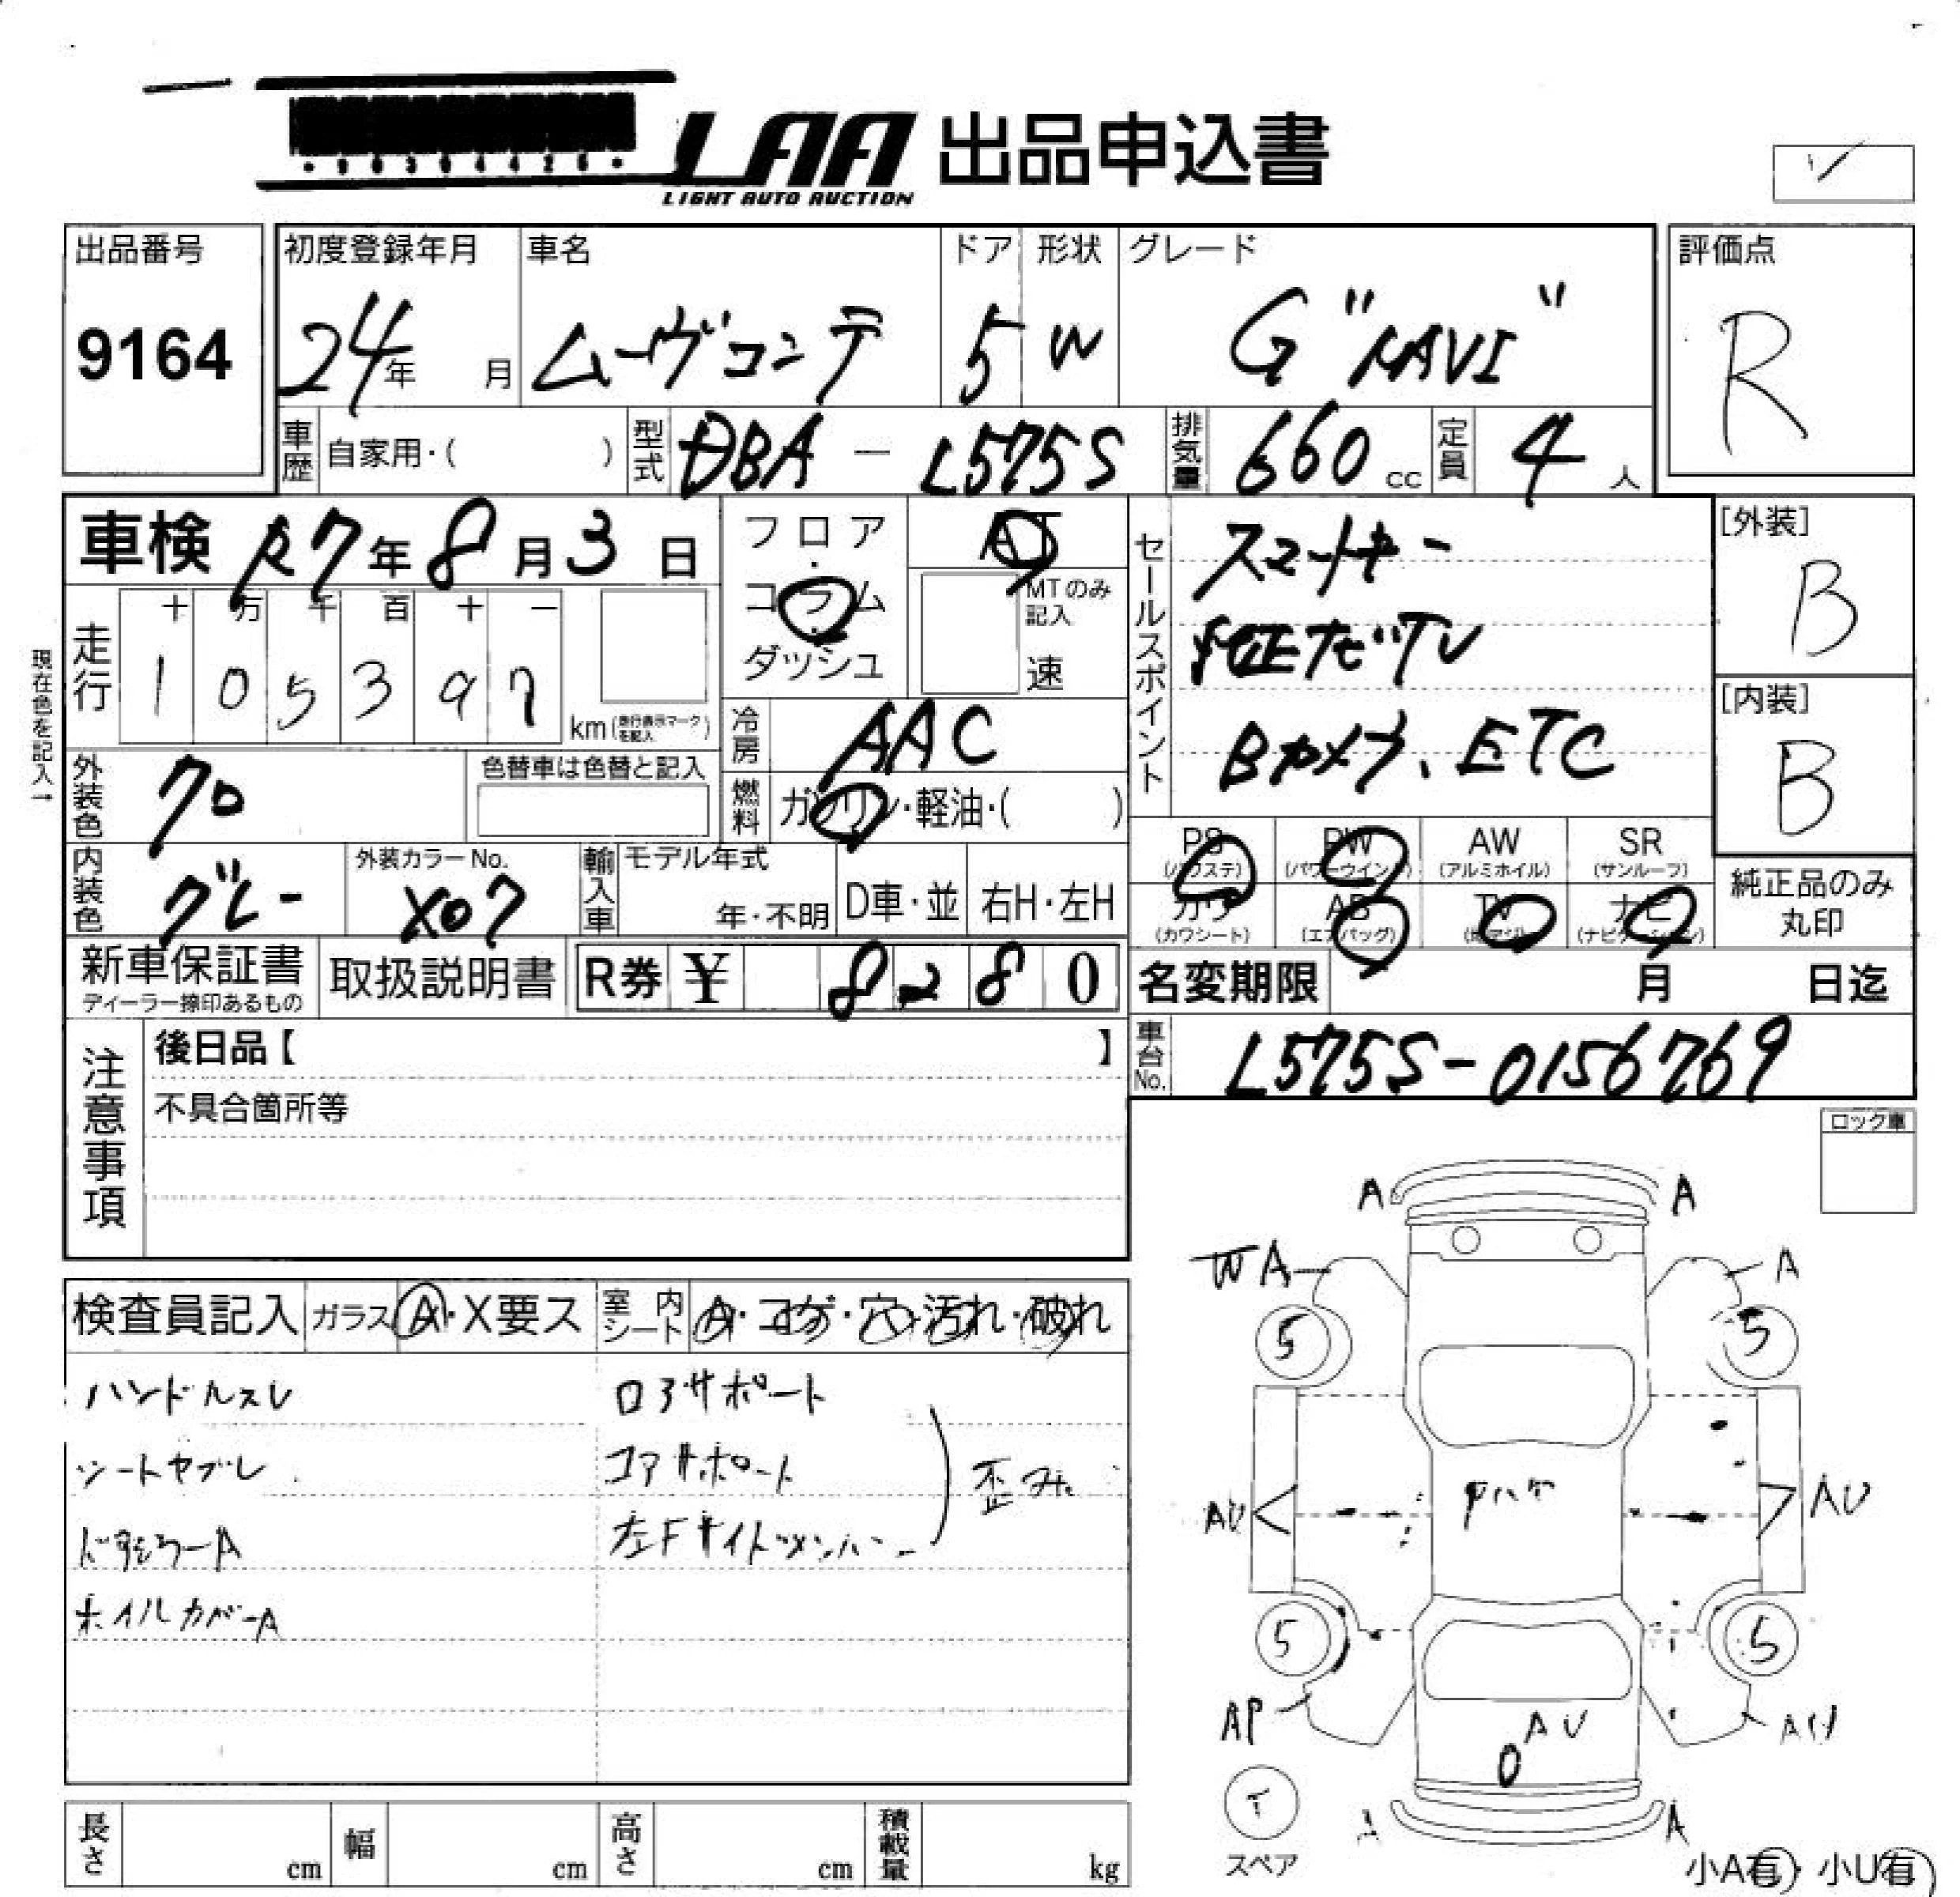 LAA 出品申込書
LIGHT AUTO AUCTION
出品番号
9164
初度登録年月
24年 月
車名
ムーヴコンテ
ドア
5
形状
W
グレード
G "NAVI"
評価点
R
車歴 自家用・( )
型式 DBA - L575S
排気量 660 cc
定員 4 人
車検 R7年8月3日
フロア・コラム・ダッシュ
AT
MTのみ記入
速
セールスポイント
スマートキー
純正ナビTV
Bカメラ、ETC
[外装]
B
[内装]
B
現在色を記入→
走行
十 万 千 百 十 一
1 0 5 3 9 7
km (走行表示マークを記入)
冷房 AAC
燃料 ガソリン・軽油・( )
外装色 クロ
色替車は色替と記入
内装色 グレー
外装カラーNo.
X07
輸入車 モデル年式
年・不明
D車・並
右H・左H
PS
(パワステ)
PW
(パワーウインド)
AW
(アルミホイル)
SR
(サンルーフ)
カワ
(カワシート)
AB
(エアバッグ)
TV
(地デジ)
ナビ
(ナビゲーション)
純正品のみ
丸印
新車保証書
ディーラー捺印あるもの
取扱説明書
R券 ¥ 8 2 8 0
名変期限 月 日迄
車台No. L575S-0156769
注意事項
後日品【 】
不具合箇所等
ロック庫
検査員記入 ガラス A・X要ス
室内シート A・コゲ・穴・汚れ・破れ
ハンドルスレ
シートヤブレ
ドアミラーA
ホイルカバーA
ロアサポート
コアサポート
左Fサイドメンバー
歪み
A A
WA A
5 5
AU AU
5 5
AP AU
AU
A
スペア
小A有・小U有
長さ cm
幅 cm
高さ cm
積載量 kg